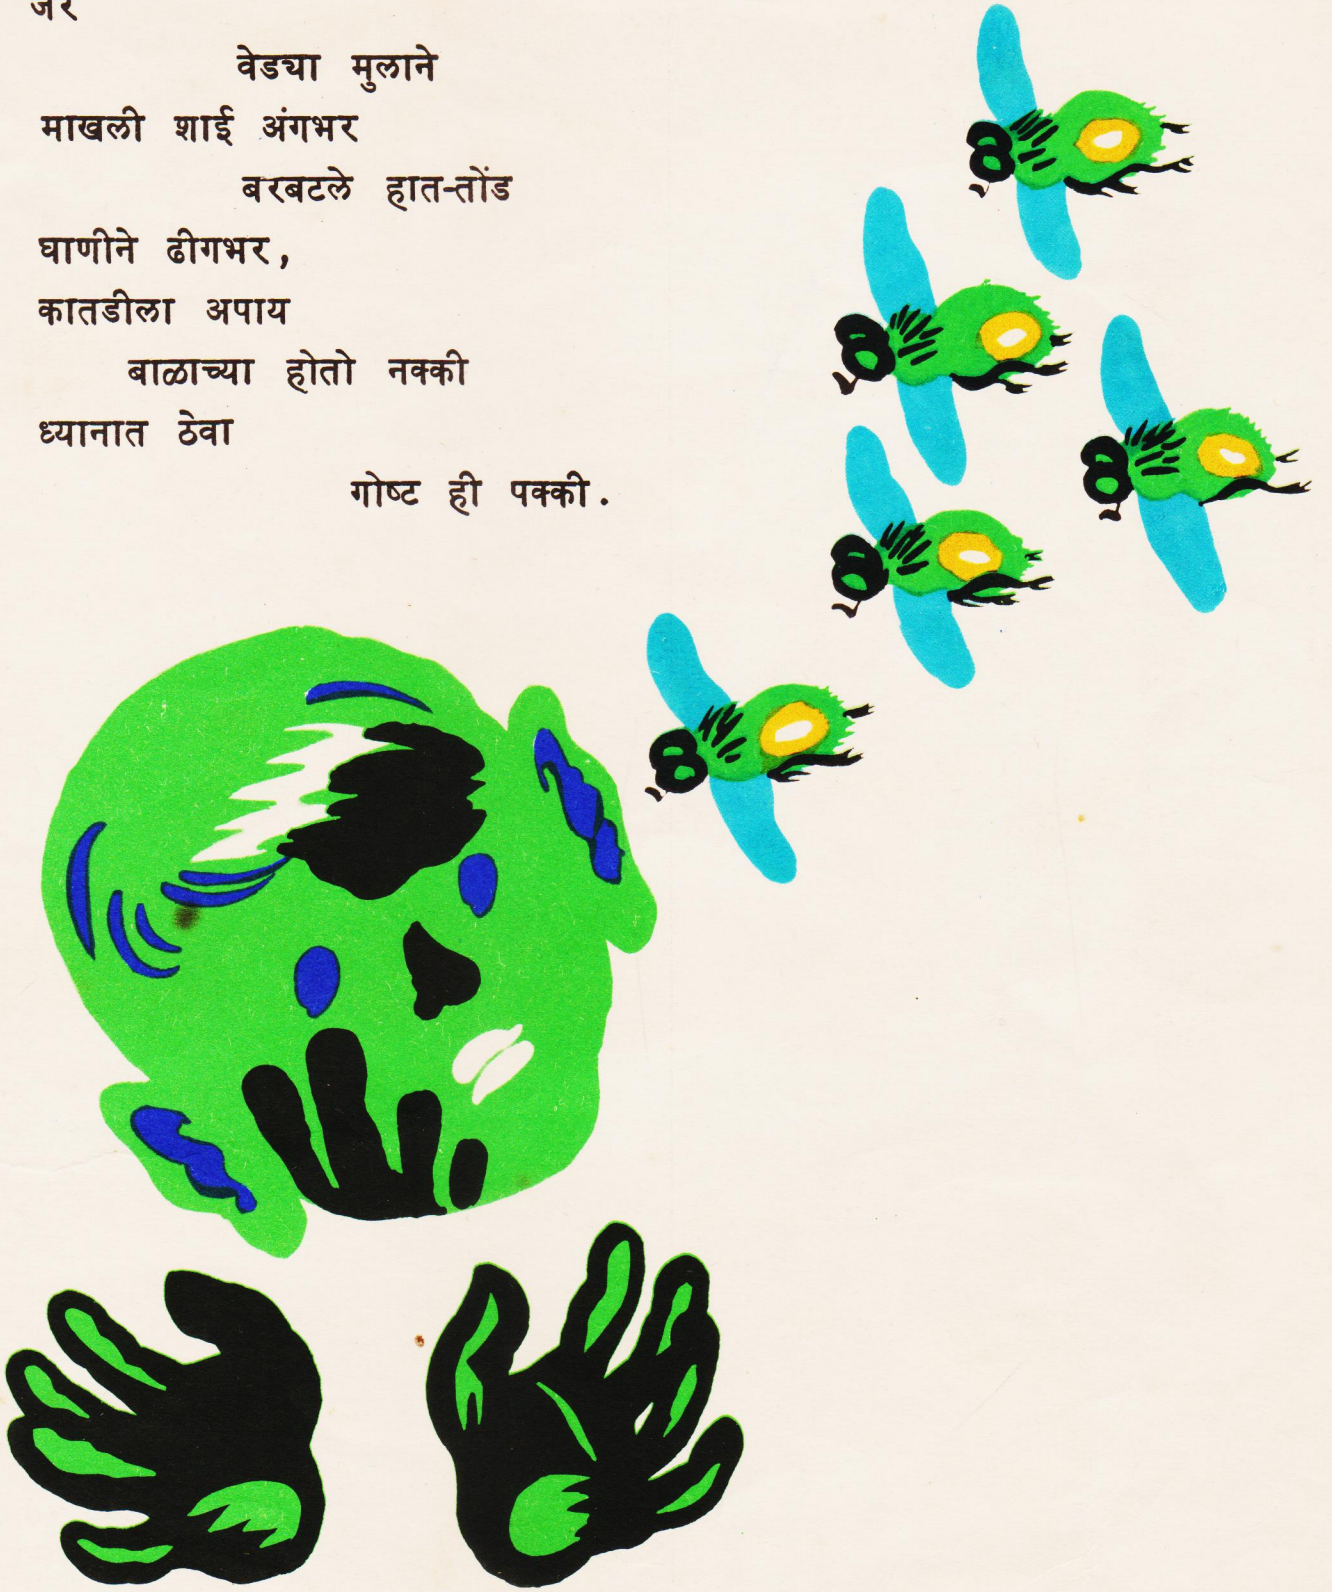 जर
वेड्या मुलाने
माखली शाई अंगभर
बरबटले हात-तोंड
घाणीने ढीगभर,
कातडीला अपाय
बाळाच्या होतो नक्की
ध्यानात ठेवा
गोष्ट ही पक्की.